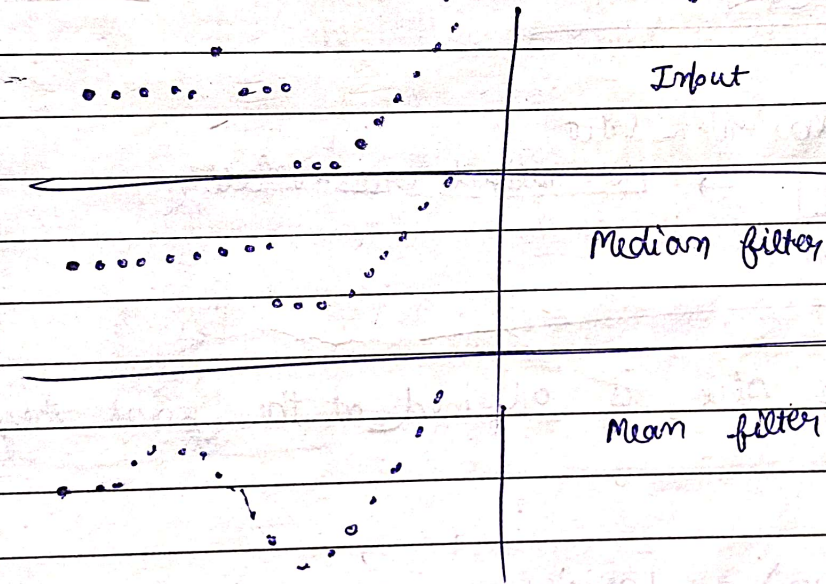 Input
Median filter
Mean filter